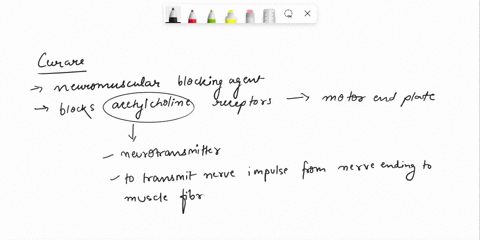 Curare
→ neuromuscular blocking agent
→ blocks acetylcholine receptors → motor end plate
- neurotransmitter
- to transmit nerve impulse from nerve ending to
muscle fibr